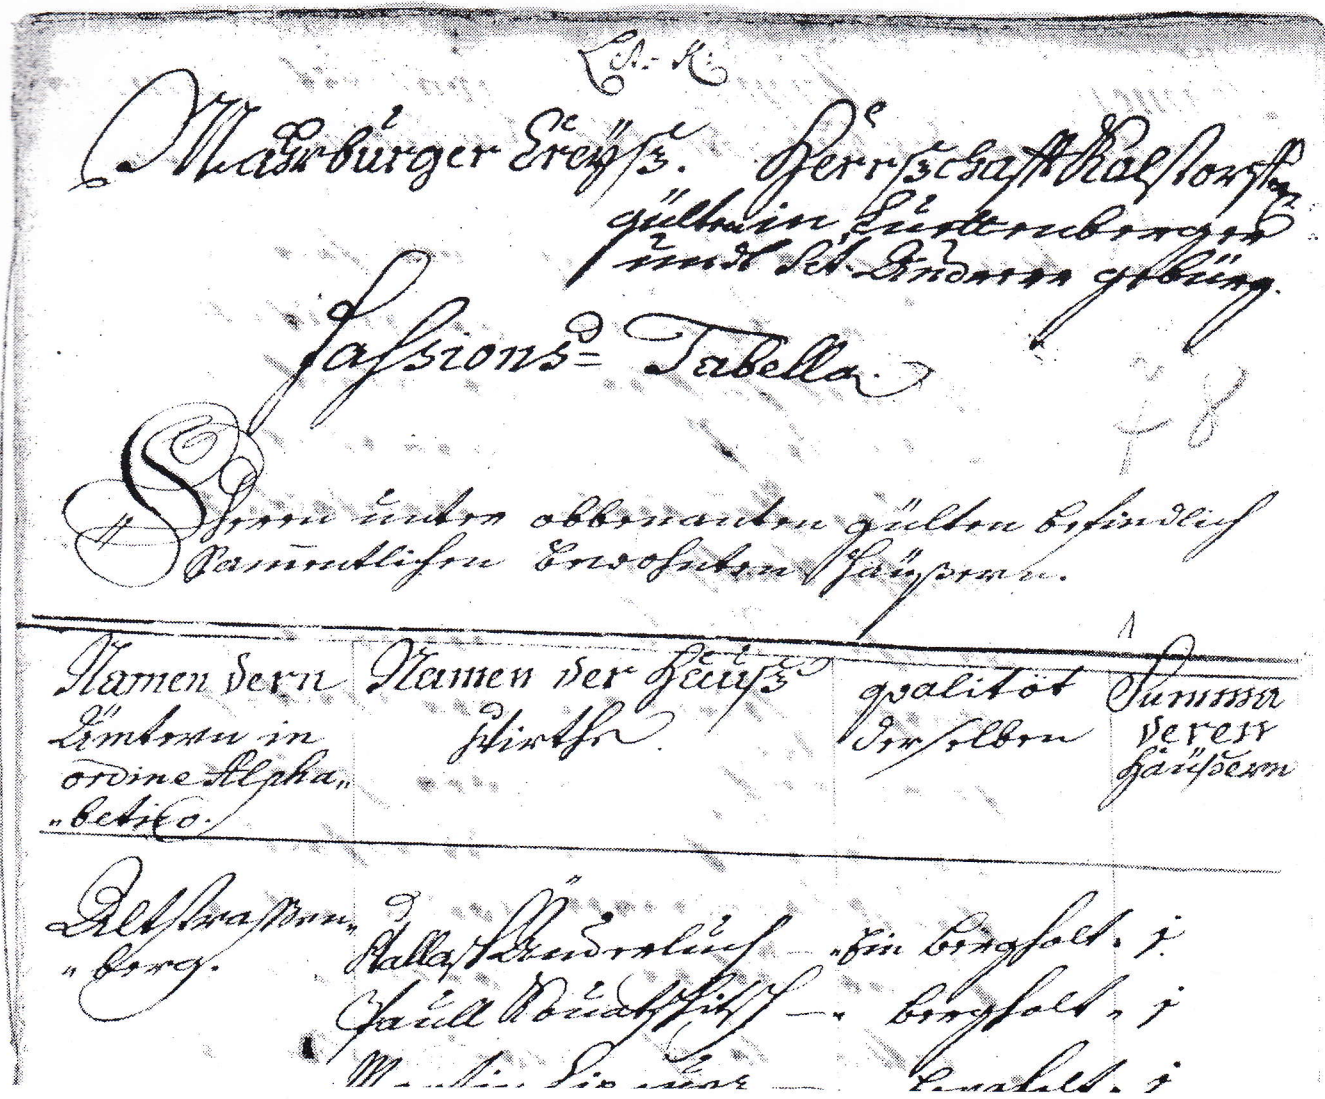 Lit: K:
Mahrburger Creyß. Herrschafft Kalstorff
gülten in Luettenberger
undt Sct. Andreer gebürg.
Fassions= Tabella.
48
Deren unter obbenanten gülten befindlich
Sammentlichen bewohnten Häußern.
Namen dern
Ämtern in
ordine Alpha„
„betico.
Namen der Hauß
Wirthe.
qualitöt
derselben
Summa
deren
Häüßern
Altstraßen„
„berg.
Änderluch — „Ein bergholt. 1.
Paull — „ bergholt „ 1
Martin — bergholt. 1